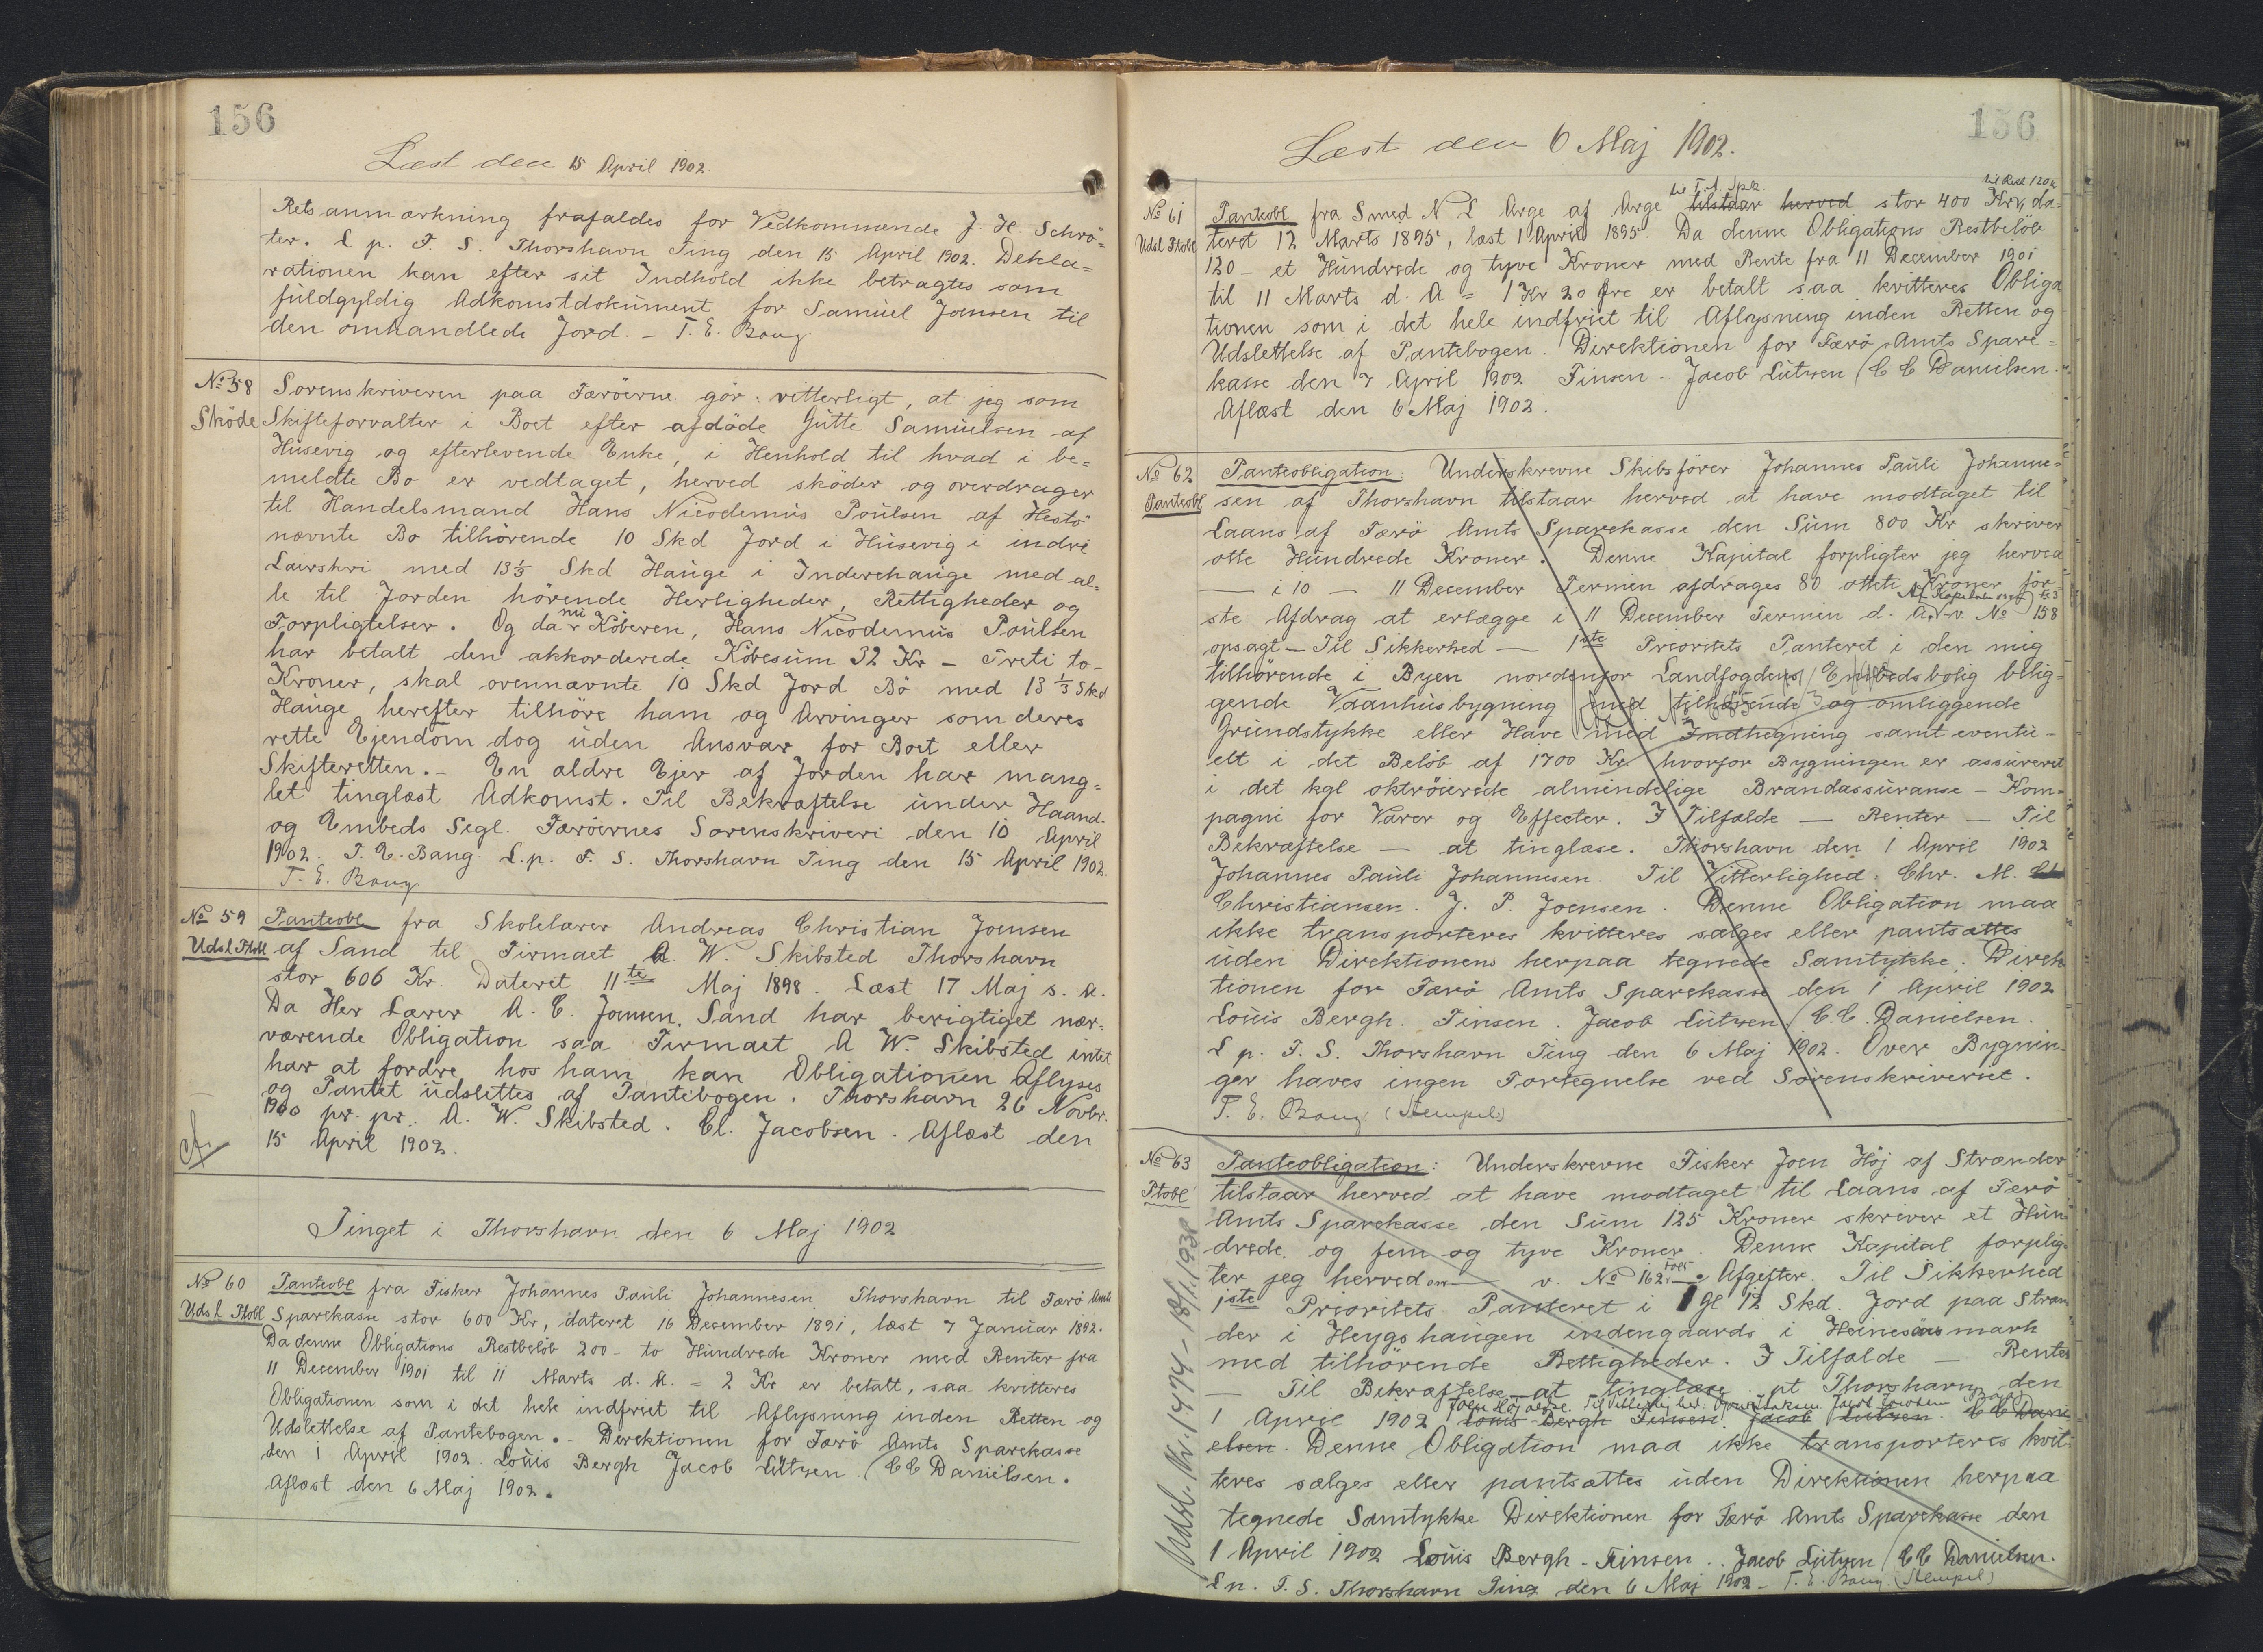 156
Læst den 15 April 1902.
Retsanmærkning frafaldes for Vedkommende J. H. Schrö=
ter. L p. F. S. Thorshavn Ting den 15 April 1902. Dekla=
rationen kan efter sit Indhold ikke betragtes som
fuldgyldig Adkomstdokument for Samuel Joensen til
den omhandlede Jord. - T. E. Bang.
No 58
Sköde
Sorenskriveren paa Færöerne gör vitterligt, at jeg som
Skifteforvalter i Boet efter afdöde Gutte Samuelsen af
Husevig og efterlevende Enke, i Henhold til hvad i be=
meldte Bo er vedtaget, herved sköder og overdrager
til Handelsmand Hans Nicodemus Poulsen af Hestö
nævnte Bo tilhörende 10 Skd Jord i Husevig i indre
Lairskri med 13⅓ Skd Hauge i Inderehauge med al=
le til Jorden hörende Herligheder, Rettigheder og
Forpligtelser. Og da nu Köberen, Hans Nicodemus Poulsen
har betalt den akkorderede Köbesum 32 Kr - Treti to -
Kroner, skal ovennævnte 10 Skd Jord Bö med 13 ⅓ Skd
Hauge herefter tilhöre ham og Arvinger som deres
rette Ejendom dog uden Ansvar for Boet eller
Skifteretten. - En ældre Ejer af Jorden har mang=
let tinglæst Adkomst. Til Bekræftelse under Haand
og Embeds Segl. Færöernes Sorenskriveri den 10 April
1902. T. E. Bang. L. p. F. S. Thorshavn Ting den 15 April 1902.
T. E. Bang
No 59
Udsl. Ptobl
Panteobl fra Skolelærer Andreas Christian Joensen
af Sand til Firmaet A. W. Skibsted Thorshavn
stor 606 Kr. Dateret 11te Maj 1898. Læst 17 Maj s. A.
Da Her Lærer A. C. Joensen, Sand har berigtiget nær=
værende Obligation saa Firmaet A W. Skibsted intet
har at fordre hos ham kan Obligationen aflyses
og Pantet udslettes af Pantebogen. Thorshavn 26 Novbr.
1900 pr. pr. A. W. Skibsted. Cl. Jacobsen. Aflæst den
15 April 1902.
Tinget i Thorshavn den 6 Maj 1902
No 60
Udsl. Ptobl
Panteobl fra Fisker Johannes Pauli Johannesen Thorshavn til Færö Amts
Sparekasse stor 600 Kr, dateret 16 December 1891, læst 7 Januar 1892.
Da denne Obligations Restbelöb 200 - to Hundrede Kroner med Renter fra
11 December 1901 til 11 Marts d. A. = 2 Kr er betalt, saa kvitteres
Obligationen som i det hele indfriet til Aflysning inden Retten og
Udslettelse af Pantebogen. - Direktionen for Færö Amts Sparekasse
den 1 April 1902. Louis Bergh Jacob Lützen / C C Danielsen.
Aflæst den 6 Maj 1902.
156
Læst den 6 Maj 1902.
No 61
Udsl Ptobl
til F. A. Spk.
Panteobl fra Smed N L Arge af Arge tilstaar herved stor 400 Kr, da=
teret 12 Marts 1895, læst 1 April 1895. Da denne Obligations Restbelöb
120 - et Hundrede og tyve Kroner med Rente fra 11 December 1901
til 11 Marts d. A = 1 Kr 20 Øre er betalt saa kvitteres Obliga
tionen som i det hele indfriet til Aflysning inden Retten og
Udslettelse af Pantebogen. Direktionen for Færö Amts Spare=
kasse den 7 April 1902 Finsen. Jacob Lützen / C C Danielsen.
Aflæst den 6 Maj 1902.
No 62
Panteobl
Panteobligation: Underskrevne Skibsförer Johannes Pauli Johanne=
sen af Thorshavn tilstaar herved at have modtaget til
Laans af Færö Amts Sparekasse den Sum 800 Kr skriver
otte Hundrede Kroner. Denne Kapital forpligter jeg herved
— i 10 — 11 December Termin afdrages 80 otteti Kroner för
ste Afdrag at erlægge i 11 December Termin d. A. - v No 158
opsagt — Til Sikkerhed — 1ste Prioritets Panteret i den mig
tilhörende i Byen nordenfor Landfogdens Embedsbolig belig=
gende Vaanhusbygning med tilhörende og omliggende
Grundstykke eller Have med Indhegning samt eventu-
elt i det Belöb af 1700 Kr hvorfor Bygningen er assureret
i det kgl oktröierede almindelige Brandassurance - Kom-
pagni for Varer og Effecter. I Tilfælde — Renter — Til
Bekræftelse — at tinglæse. Thorshavn den 1 April 1902
Johannes Pauli Johannesen. Til Vitterlighed: Chr. M.
Christiansen. J. P. Joensen. Denne Obligation maa
ikke transporteres kvitteres sælges eller pantsættes
uden Direktionens herpaa tegnede Samtykke. Direk
tionen for Færö Amts Sparekasse den 1 April 1902
Louis Bergh. Finsen. Jacob Lützen / C. C. Danielsen.
L p. F. S. Thorshavn Ting den 6 Maj 1902. Over Bygnin-
ger haves ingen Fortegnelse ved Sorenskriveriet.
T. E. Bang (Stempel)
No 63
Ptobl
Panteobligation: Underskrevne Fisker Joen Höj af Strænder
tilstaar herved at have modtaget til Laans af Færö
Amts Sparekasse den Sum 125 Kroner skriver et Hun
drede og fem og tyve Kroner. Denne Kapital forplig=
ter jeg herved — v. No 162 — Afgifter. Til Sikkerhed
1ste Prioritets Panteret i 1 Gl 12 Skd. Jord paa Stræn
der i Heygshaugen indengaards i Heinesaas mark
med tilhörende Rettigheder. I Tilfælde — Renter
— Til Bekræftelse — at tinglæse pt Thorshavn den
1 April 1902 Louis Bergh Finsen Jacob Lützen. C C Dani
elsen. Denne Obligation maa ikke transporteres kvit=
teres sælges eller pantsættes uden Direktionen herpaa
tegnede Samtykke Direktionen for Færö Amts Sparekasse den
1 April 1902 Louis Bergh - Finsen. Jacob Lützen / C C Danielsen.
L p. F. S. Thorshavn Ting den 6 Maj 1902 - T. E. Bang. (Stempel)